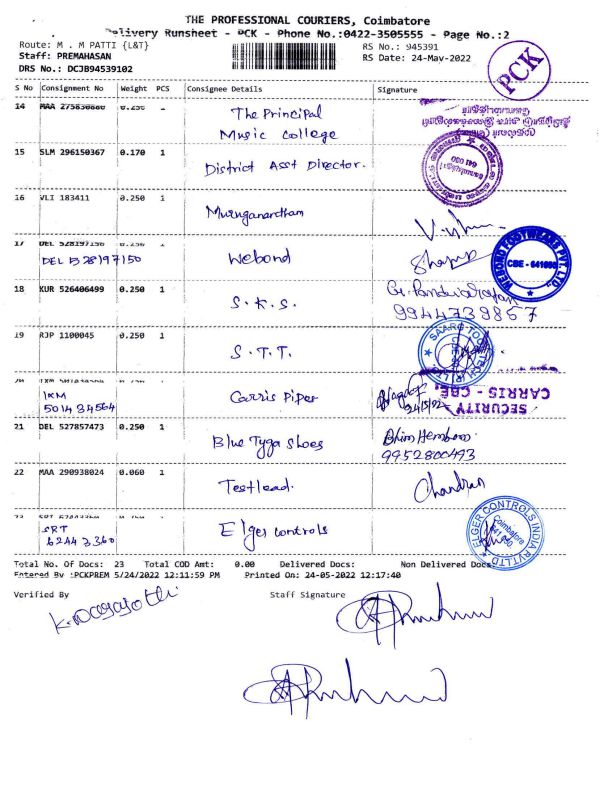 THE PROFESSIONAL COURIERS, Coimbatore
Delivery Runsheet - PCK - Phone No.:0422-3505555 - Page No.:2
Route: M . M PATTI {L&T}
RS No.: 945391
Staff: PREMAHASAN
RS Date: 24-May-2022
DRS No.: DCJB94539102
PCK
S No Consignment No Weight PCS Consignee Details Signature
14 MAA 275830880 0.250 The Principal
Music College
15 SLM 296150367 0.170 1 District Asst Director.
641 050
16 VLI 183411 0.250 1 Muruganantham
17 DEL 528197150 0.250 1 Webond
DEL 528197150
WEBOND FOOTWEARS PVT. LTD.
CBE - 641050
18 KUR 526406499 0.250 1 S.K.S.
9944739857
19 RJP 1100045 0.250 1 S.T.T.
20 Carris Piper
IXM
501434564
24/5/22
SECURITY
CARRIS - CBE.
21 DEL 527857473 0.250 1 Blue Tyga Shoes
9952800493
22 MAA 290938024 0.060 1 Testlead.
Chandran
23 Elger Controls
SRT
62443360
ELGER CONTROLS INDIA PVT LTD
Coimbatore
641 050.
Total No. Of Docs: 23 Total COD Amt: 0.00 Delivered Docs: Non Delivered Docs:
Entered By :PCKPREM 5/24/2022 12:11:59 PM Printed On: 24-05-2022 12:17:40
Verified By Staff Signature